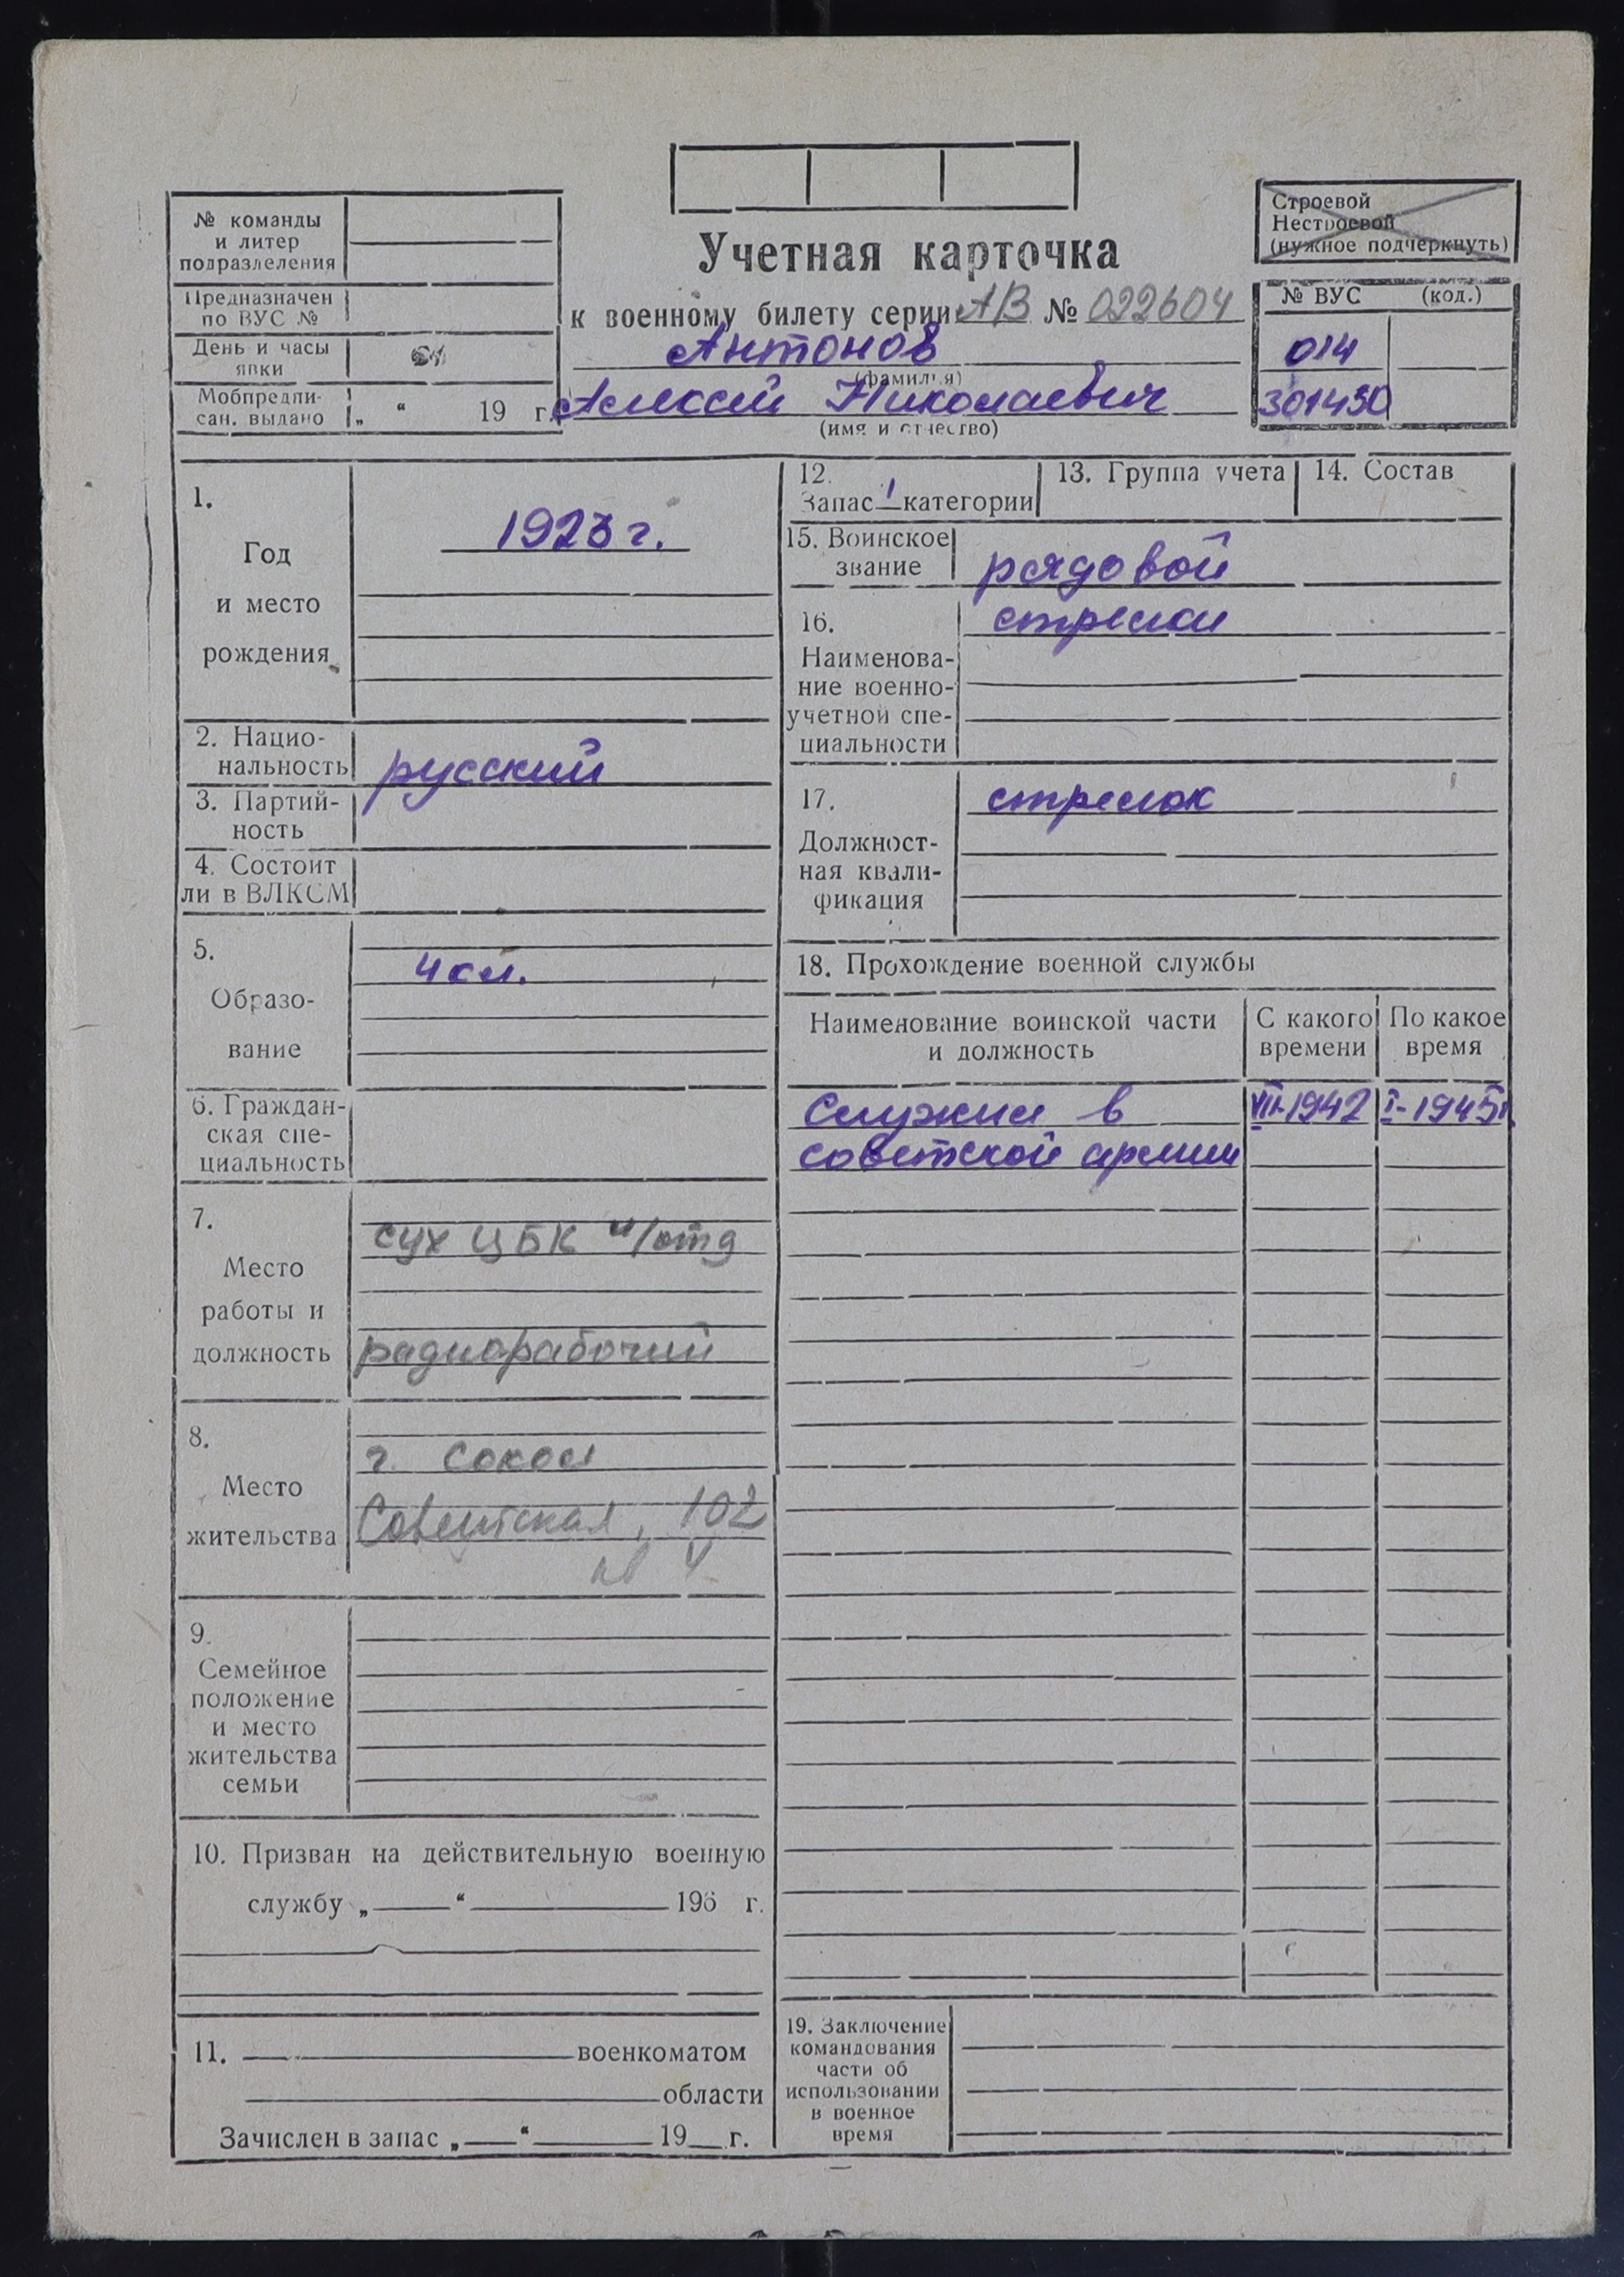 № команды
и литер
подразделения
Предназначен
по ВУС №
День и часы
явки
Мобпредпи-
сан. выдано „ “ 19 г.
Учетная карточка
к военному билету серии АВ № 022604
Антонов
(фамилия)
Алексей Николаевич
(имя и отчество)
Строевой
Нестроевой
(нужное подчеркнуть)
№ ВУС (код.)
014
301450
1.
Год
и место
рождения
1923 г.
2. Нацио-
нальность русский
3. Партий-
ность
4. Состоит
ли в ВЛКСМ
5.
Образо-
вание
4 кл.
6. Граждан-
ская спе-
циальность
7.
Место
работы и
должность
сух ЦБК /отд
радиорабочий
8.
Место
жительства
г. Сокол
Советская, 102
кв 4
9.
Семейное
положение
и место
жительства
семьи
10. Призван на действительную военную
службу „ “ 196 г.
11. военкоматом
области
Зачислен в запас „ “ 19 г.
12.
Запас 1 категории
13. Группа учета
14. Состав
15. Воинское
звание рядовой
16.
Наименова-
ние военно-
учетной спе-
циальности
стрелки
17.
Должност-
ная квали-
фикация
стрелок
18. Прохождение военной службы
Наименование воинской части
и должность
С какого
времени
По какое
время
Служил в VIII-1942 I-1945
советской армии
19. Заключение
командования
части об
использовании
в военное
время